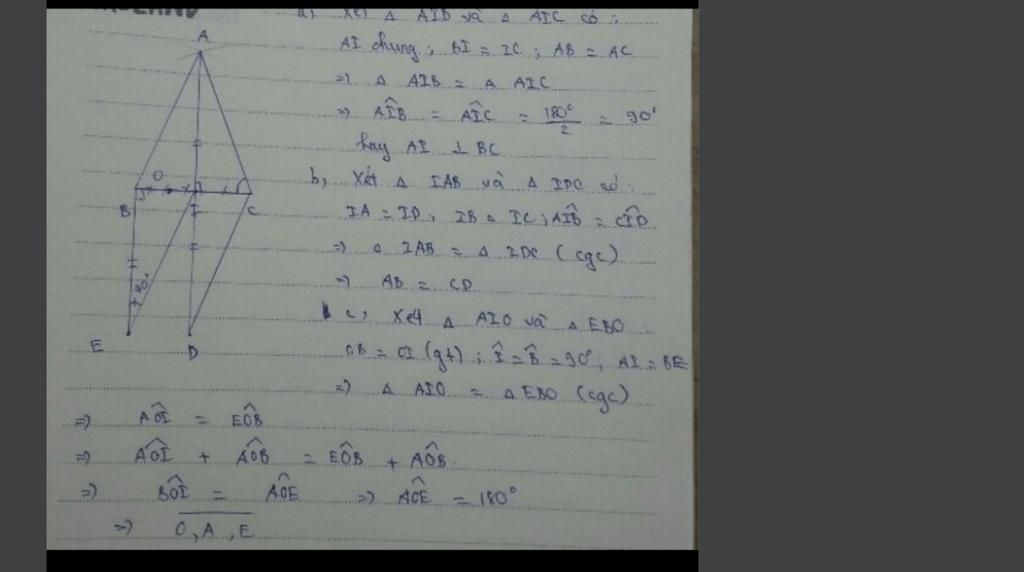 a, Xét Δ AIB và Δ AIC có :
AI chung ; BI = IC ; AB = AC
=> Δ AIB = Δ AIC
=> AÎB = AÎC = 180°/2 = 90°
hay AI ⊥ BC
b, Xét Δ IAB và Δ IDC có :
IA = ID ; IB = IC ; AÎB = CÎD
=> Δ IAB = Δ IDC (cgc)
=> AB = CD
c, Xét Δ AIO và Δ EBO :
OB = OI (gt) ; Î = B̂ = 90° ; AI = BE
=> Δ AIO = Δ EBO (cgc)
=> AÔI = EÔB
=> AÔI + AÔB = EÔB + AÔB
=> BÔI = AÔE => AÔE = 180°
=> O, A, E
A
O
B
I
C
30°
E
D